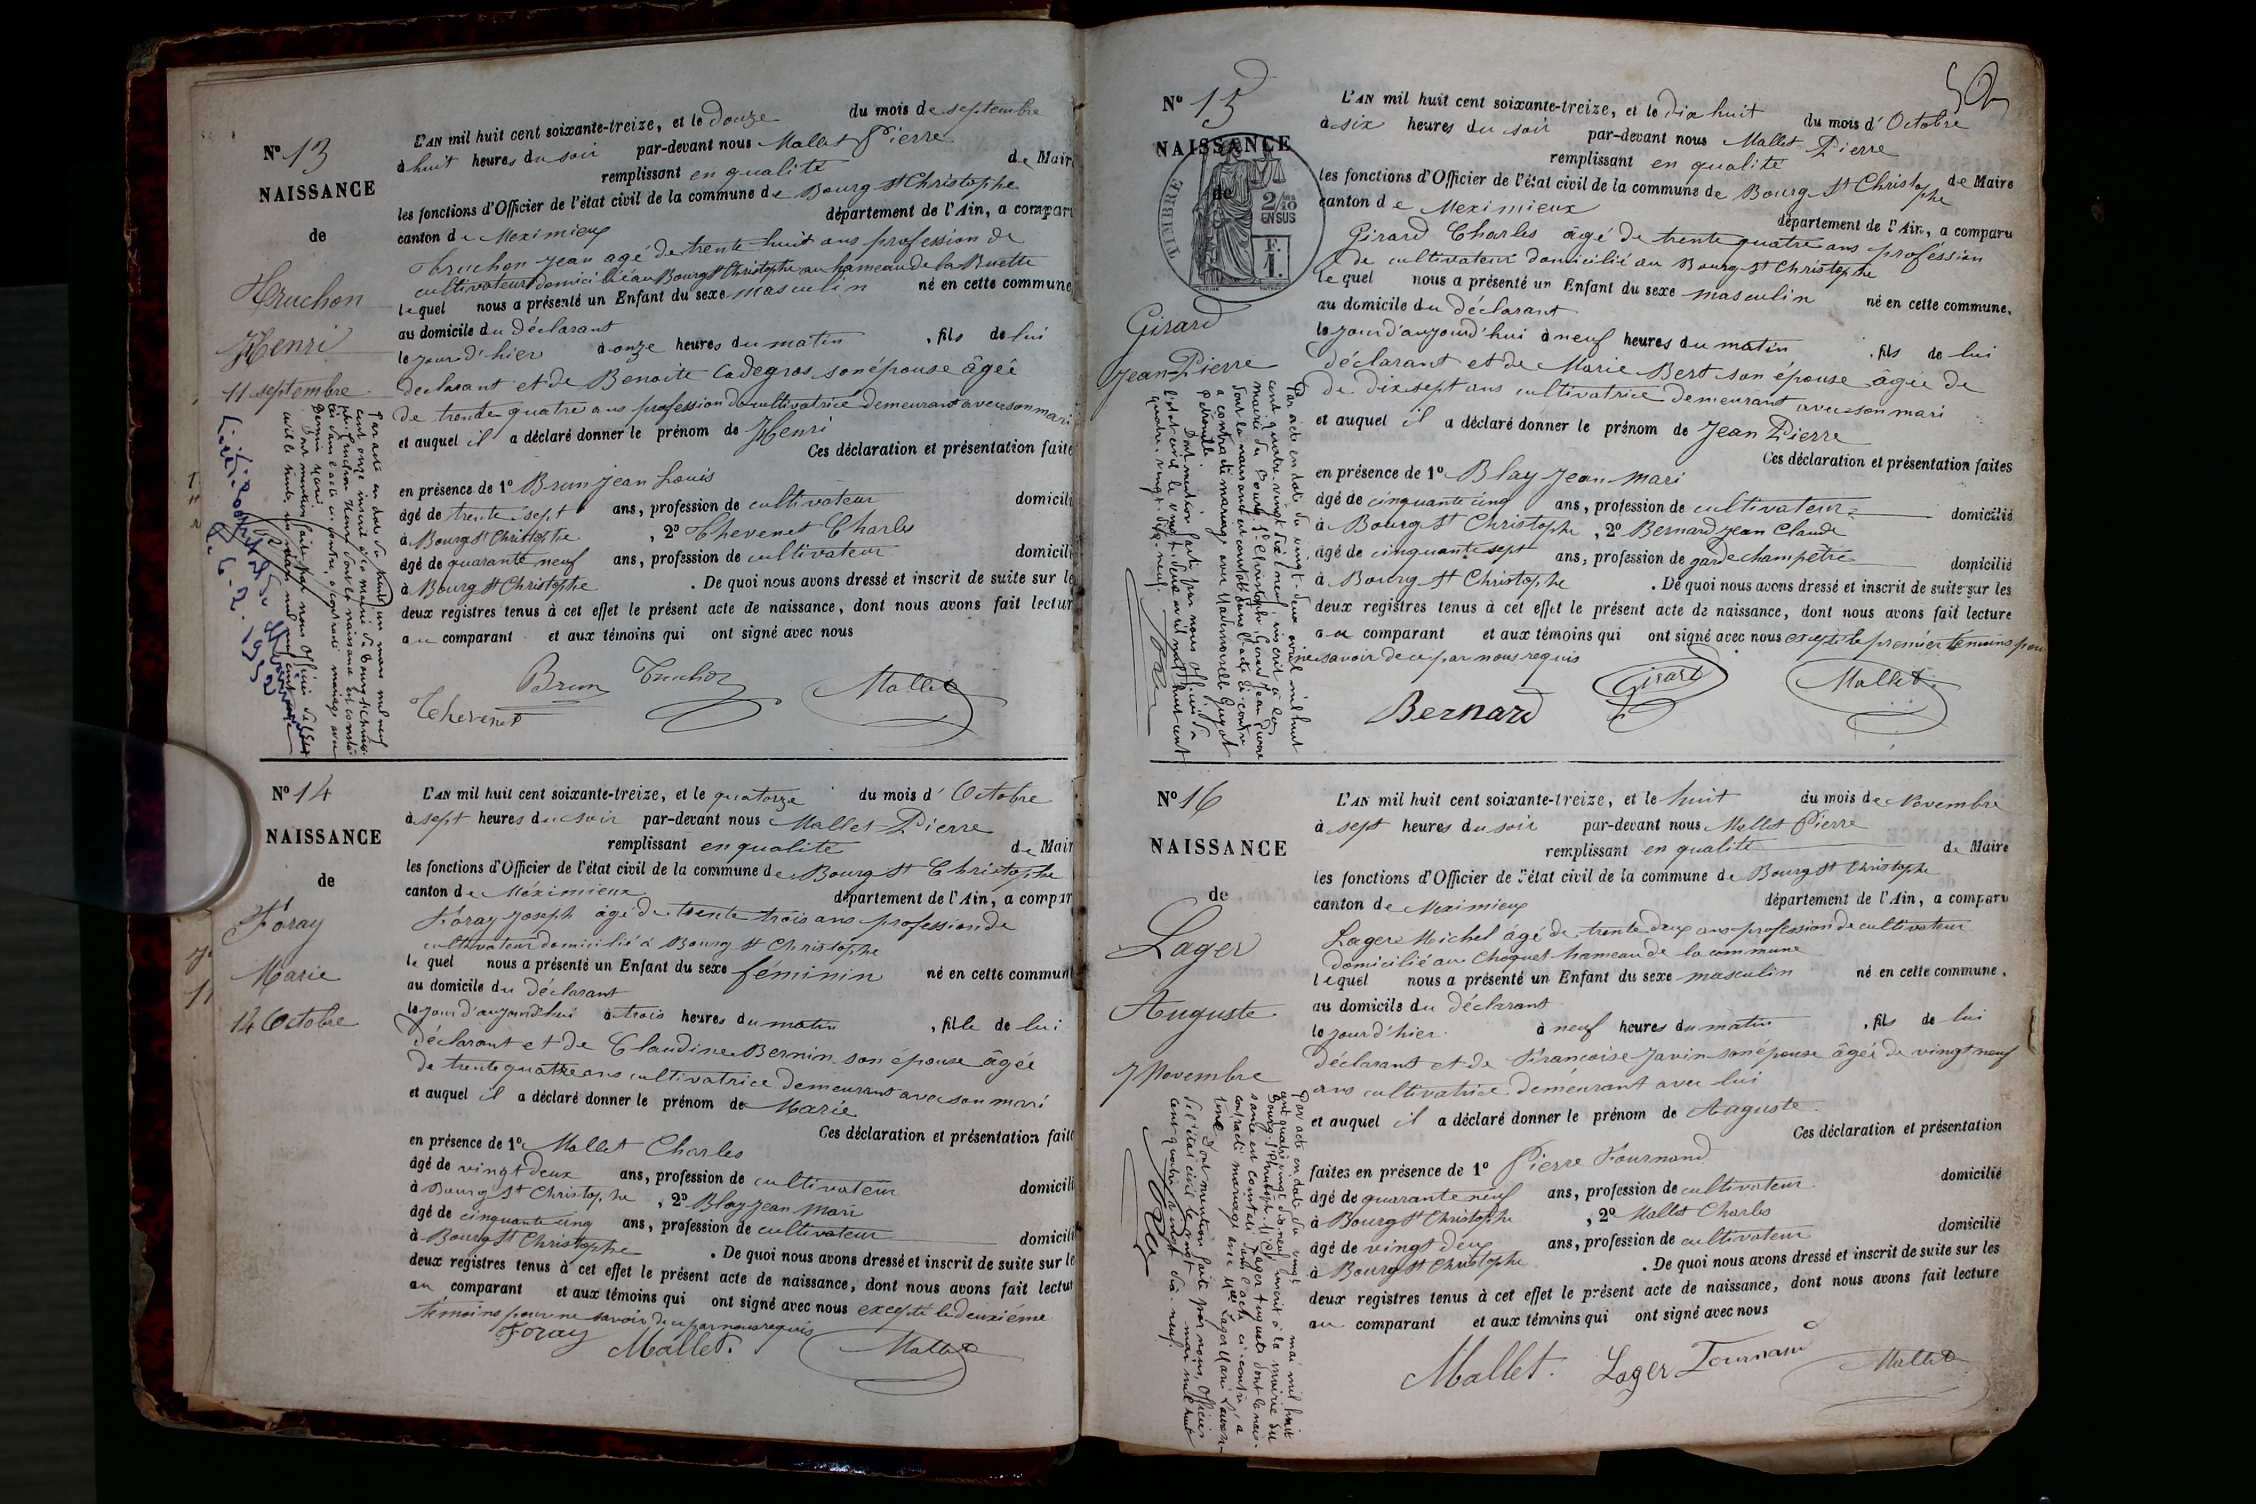 L'AN mil huit cent soixante-treize, et le douze du mois de septembre
à huit heures du soir par-devant nous Mallet Pierre
remplissant en qualité de Mair
les fonctions d'Officier de l'état civil de la commune de Bourg St Christophe
canton de Meximieux département de l'Ain, a compar
Jean agé de trente huit ans profession de
cultivateur domicilié au Bourg St Christophe au hameau de la
le quel nous a présenté un Enfant du sexe masculin né en cette commune
au domicile du déclarant
le jour d'hier à onze heures du matin , fils de lui
déclarant et de Benoite Cadegros son épouse âgée
de trente quatre ans profession de cultivatrice demeurant avec son mari
et auquel il a déclaré donner le prénom de Henri
Ces déclaration et présentation faite
en présence de 1° Brun Jean Louis
âgé de trente-sept ans, profession de cultivateur domicili
à Bourg St Christophe , 2° Thevenet Charles
âgé de quarante neuf ans, profession de cultivateur domicili
à Bourg St Christophe . De quoi nous avons dressé et inscrit de suite sur le
deux registres tenus à cet effet le présent acte de naissance, dont nous avons fait lectur
au comparant et aux témoins qui ont signé avec nous
Brun Truchon Mallet
Thevenet
N° 13
NAISSANCE
de
Henri
11 septembre
N° 14
NAISSANCE
de
Foray
Marie
14 Octobre
L'AN mil huit cent soixante-treize, et le quatorze du mois d'Octobre
à sept heures du soir par-devant nous Mallet Pierre
remplissant en qualité de Mair
les fonctions d'Officier de l'état civil de la commune de Bourg St Christophe
canton de Méximieux département de l'Ain, a compar
Foray Joseph âgé de trente trois ans profession de
cultivateur domicilié à Bourg St Christophe
le quel nous a présenté un Enfant du sexe féminin né en cette commun
au domicile du déclarant
le jour d'aujourd'hui à trois heures du matin , fille de lui
déclarant et de Claudine Bernin son épouse âgée
de trente quatre ans cultivatrice demeurant avec son mari
et auquel il a déclaré donner le prénom de Marie
Ces déclaration et présentation faite
en présence de 1° Mallet Charles
âgé de vingt deux ans, profession de cultivateur domicili
à Bourg St Christophe , 2° Blay Jean Mari
âgé de cinquante cinq ans, profession de cultivateur domicili
à Bourg St Christophe . De quoi nous avons dressé et inscrit de suite sur le
deux registres tenus à cet effet le présent acte de naissance, dont nous avons fait lectur
au comparant et aux témoins qui ont signé avec nous excepté le deuxiéme
témoins pour ne savoir de ce par nous requis
Foray Mallet. Mallet
N° 15
NAISSANCE
de
TIMBRE
2/10
EN SUS
F.
1.
Girard
Jean-Pierre
L'AN mil huit cent soixante-treize, et le dix huit du mois d'Octobre
à six heures du soir par-devant nous Mallet Pierre
remplissant en qualité de Maire
les fonctions d'Officier de l'état civil de la commune de Bourg St Christophe
canton de Meximieux département de l'Ain, a comparu
Girard Charles âgé de trente quatre ans proféssion
de cultivateur domicilié au Bourg St Christophe
le quel nous a présenté un Enfant du sexe masculin né en cette commune.
au domicile du déclarant
le jour d'aujourd'hui à neuf heures du matin , fils de lui
déclarant et de Marie Bert son épouse âgée de
de dix sept ans cultivatrice demeurant avec son mari
et auquel il a déclaré donner le prénom de Jean Pierre
Ces déclaration et présentation faites
en présence de 1° Blay Jean Mari
âgé de cinquante cinq ans, profession de cultivateur domicilié
à Bourg St Christophe , 2° Bernard Jean Claude
âgé de cinquante sept ans, profession de garde champêtre domicilié
à Bourg St Christophe . De quoi nous avons dressé et inscrit de suite sur les
deux registres tenus à cet effet le présent acte de naissance, dont nous avons fait lecture
au comparant et aux témoins qui ont signé avec nous excepté le premier témoins pour
ne savoir de ce par nous requis
Bernard Girard Mallet
Par acte en date du vingt-deux avril mil huit
cent quatre vingt dix neuf, inscrit à la
mairie du Bourg St Christophe Girard Jean Pierre
dont la naissance est constatée dans l'acte ci-contre
a contracté mariage avec Mademoiselle Guyot
Pétronille.
Dont mention faite par nous Officier de
l'état civil le vingt-deux avril mil huit cent
quatre-vingt-dix-neuf.
N° 16
NAISSANCE
de
Lager
Auguste
7 Novembre
L'AN mil huit cent soixante-treize, et le huit du mois de Novembre
à sept heures du soir par-devant nous Mallet Pierre
remplissant en qualité de Maire
les fonctions d'Officier de l'état civil de la commune de Bourg St Christophe
canton de Meximieux département de l'Ain, a comparu
Lager Michel âgé de trente deux ans profession de cultivateur
domicilié au Choquet hameau de la commune
le quel nous a présenté un Enfant du sexe masculin né en cette commune.
au domicile du déclarant
le jour d'hier à neuf heures du matin , fils de lui
déclarant et de Francoise Javin son épouse âgée de vingt neuf
ans cultivatrice demeurant avec lui
et auquel il a déclaré donner le prénom de Auguste
Ces déclaration et présentation
faites en présence de 1° Pierre Fournand
âgé de quarante neuf ans, profession de cultivateur domicilié
à Bourg St Christophe , 2° Mallet Charles
âgé de vingt deux ans, profession de cultivateur domicilié
à Bourg St Christophe . De quoi nous avons dressé et inscrit de suite sur les
deux registres tenus à cet effet le présent acte de naissance, dont nous avons fait lecture
au comparant et aux témoins qui ont signé avec nous
Mallet. Lager Fournand Mallet